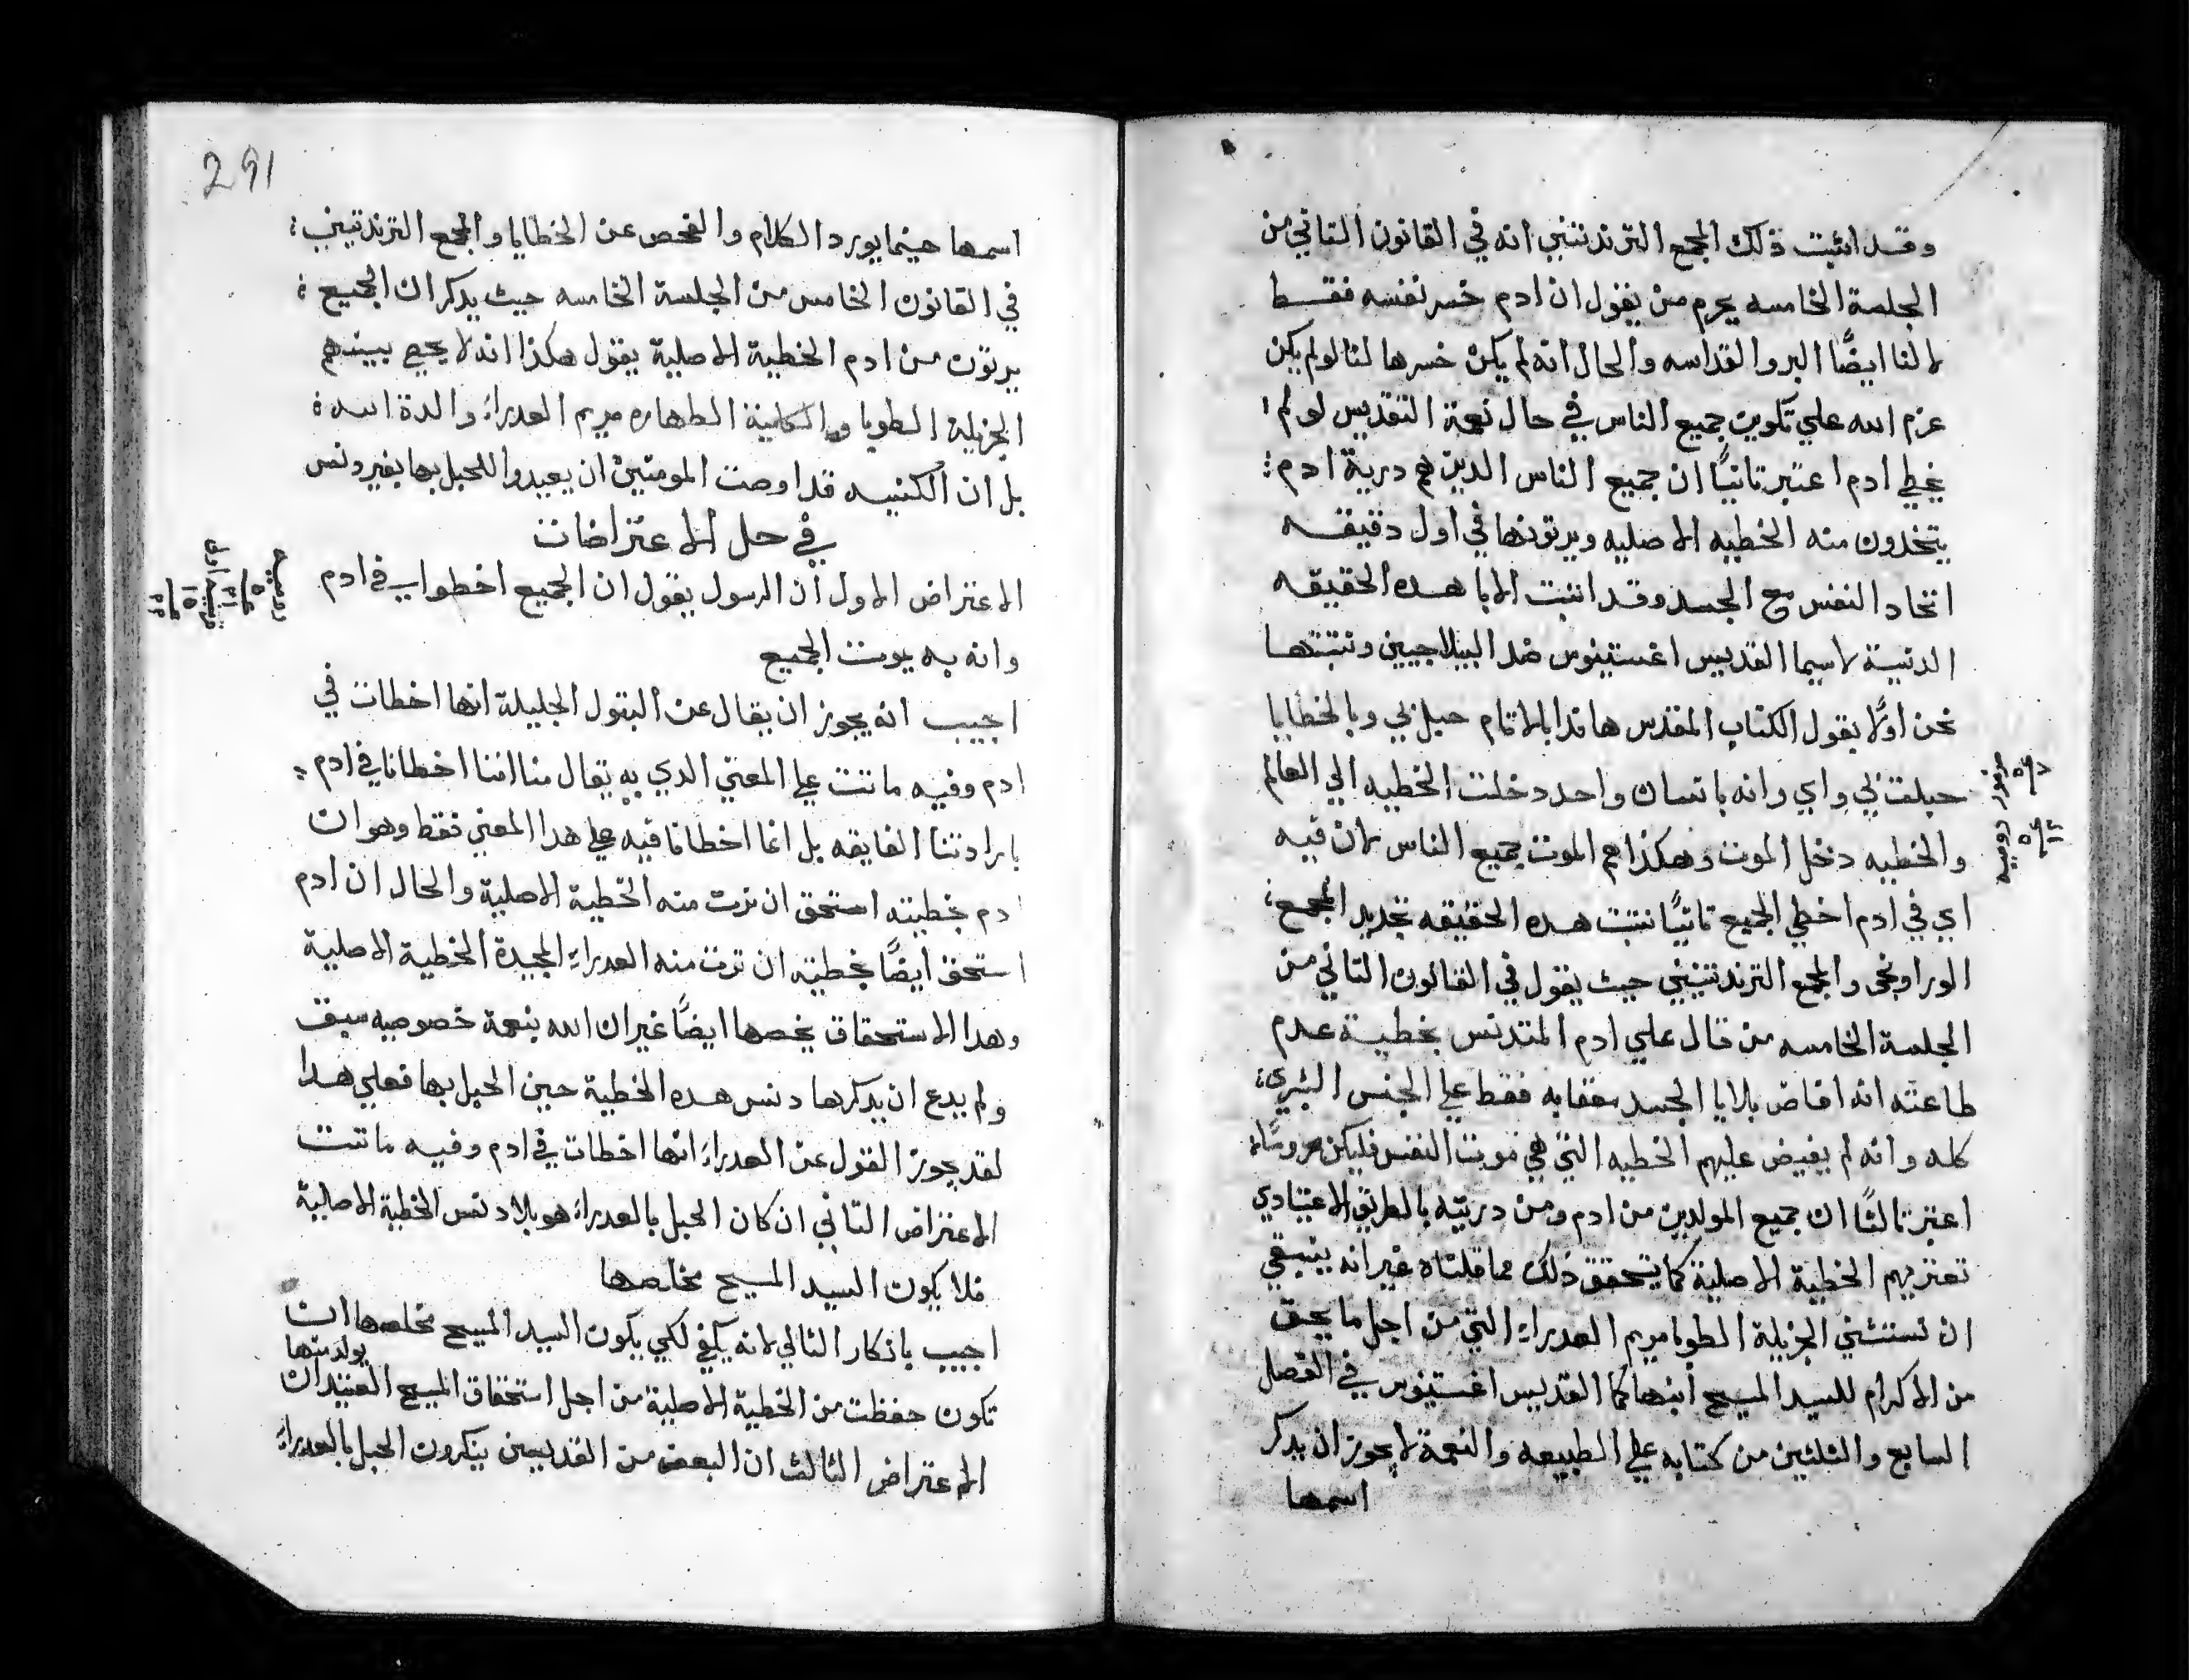 وقد اثبت ذلك المجمع التريدنتيني انه في القانون التاني من
الجلسة الخامسه يحرم من يقول ان ادم خسر نفسه فقط
لا لنا ايضًا البر والقداسه والحال انه لم يكن خسرها لنا لو لم يكن
عزم الله علي تكوين جميع الناس في حال نعمة التقديس لو لم
يخطي ادم اعتبر تانيًا ان جميع الناس الدين هم درية ادم
يتخدون منه الخطيه الاصليه ويرتونها في اول دقيقه
اتحاد النفس مع الجسد وقد اتبت الابا هده الحقيقه
الدنيية لاسيما القديس اغستينوس ضد البيلاجيين ونتبتها
نحن اولًا يقول الكتاب المقدس هاندا بالاتام حبل بي وبالخطايا
حبلت بي واي وانه بانسان واحد دخلت الخطيه الي العالم
والخطيه دخل الموت وهكذا عم الموت جميع الناس لان فيه
اي في ادم اخطي الجميع تانيًا نتبت هده الحقيقه بتحديد المجمع
الوراوجي والمجمع التريدنتيني حيث يقول في القانون التاني من
الجلسة الخامسه من قال علي ادم المتدنس بخطية عدم
طاعته انه افاض بلايا الجسد عقابه فقط علي الجنس البشري
كله وانه لم يفيض عليهم الخطيه التي هي موت النفس فليكن محرومًا
اعتبر تالتًا ان جميع المولدين من ادم ومن دريته بالطريق الاعتيادي
تعتريهم الخطية الاصلية كما يتحقق ذلك مما قلناه غير انه ينبغي
ان نستثني الجزيلة الطوبا مريم العدراء التي من اجل ما يحق
من الاكرام للسيد المسيح ابنها كما القديس اغستينوس في الفصل
السابع والثلثين من كتابه علي الطبيعه والنعمة لا يجوز ان يدكر
اسمها
مزمور ٥٠ ع ٧
روميه ٥ ع ١٢
291
اسمها حينما يورد الكلام والفحص عن الخطايا والمجمع التريدنتيني
في القانون الخامس من الجلسة الخامسه حيث يدكر ان الجميع
يرتون من ادم الخطية الاصلية يقول هكذا انه لا يحصي بينهم
الجزيلة الطوبا والكلية الطهاره مريم العدراء والدة الله
بل ان الكنيسه قد اوصت المومنين ان يعيدوا للحبل بها بغير دنس
في حل الاعتراضات
الاعتراض الاول ان الرسول يقول ان الجميع اخطوا في ادم
وانه به يموت الجميع
اجيب انه يجوز ان يقال عن البتول الجليلة انها اخطات في
ادم وفيه ماتت علي المعني الدي به يقال منا اننا اخطانا في ادم
بارادتنا الفايقه بل انما اخطانا فيه علي هدا المعني فقط وهو ان
ادم بخطيته استحق ان نرت منه الخطية الاصلية والحال ان ادم
استحق ايضًا بخطيته ان ترت منه العدراء المجيدة الخطية الاصلية
وهدا الاستحقاق يخصها ايضًا غير ان الله بنعمة خصوصيه سبق
ولم يدع ان يدكرها دنس هده الخطية حين الحبل بها فعلي هدا
لقد يجوز القول عن العدراء انها اخطات في ادم وفيه ماتت
الاعتراض التاني ان كان الحبل بالعدراء هو بلا دنس الخطية الاصلية
فلا يكون السيد المسيح مخلصها
اجيب بانكار التالي لانه يكفي لكي يكون السيد المسيح مخلصها ان
تكون حفظت من الخطية الاصلية من اجل استحقاق المسيح العتيد ان يولد منها
الاعتراض الثالث ان البعض من القديسين ينكرون الحبل بالعدراء